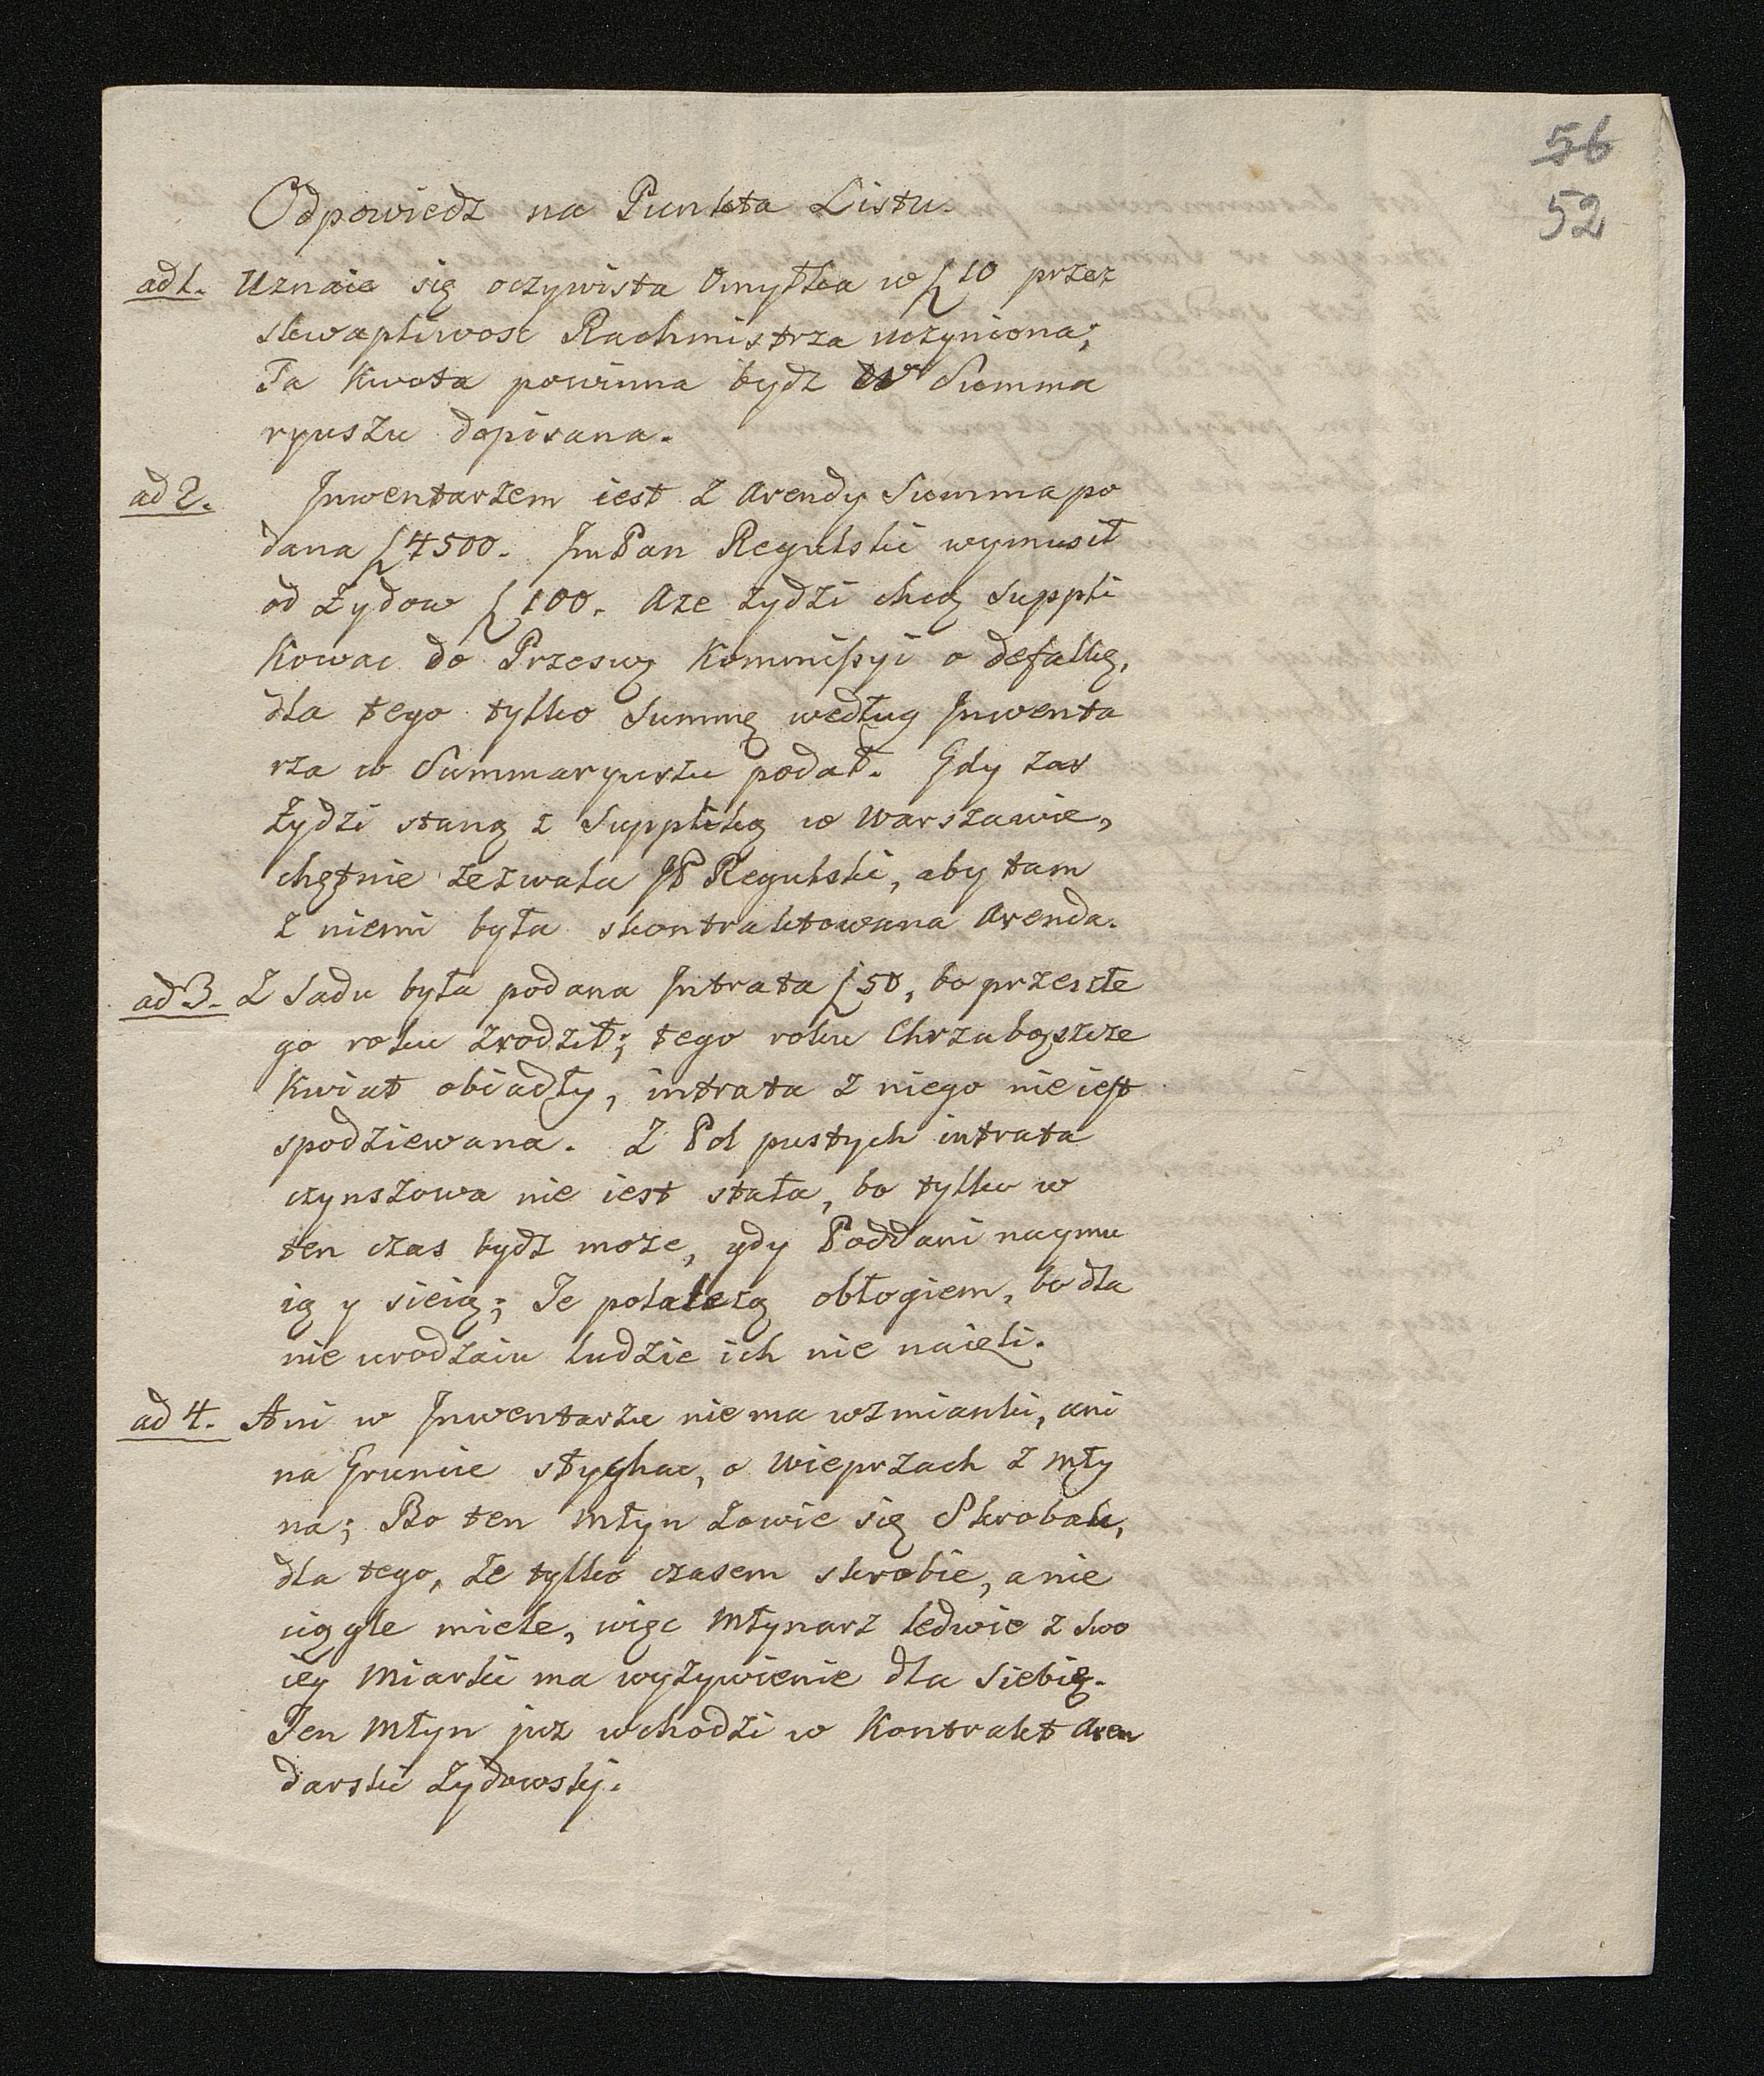 56
52
Odpowiedz na Punkta Listu.
ad 1. Uznaie się oczywista Omyłka w ƒ 10 przez
skwapliwosc Rachmistrza uczyniona;
Ta Kwota powinna bydz w Summa
ryuszu dopisana.
ad 2. Jnwentarzem iest z Arendy Summa po
dana ƒ 4500. JmPan Regulski wymusił
od Zydow ƒ 100. Aze zydzi chcą Suppli
kowac do Przesw. Kommissyi o defalkę,
dla tego tylko Summę według Jnwenta
rza w Summaryuszu podał. Gdy zas
Zydzi staną z Suppliką w Warszawie,
chętnie zezwala JP Regulski, aby tam
z niemi była skontraktowana Arenda.
ad 3. Z Sadu była podana Jntrata ƒ 50, bo przeszłe
go roku zrodził; tego roku Chrzabąszcze
Kwiat obiadły, intrata z niego nie iest
spodziewana. Z Pol pustych intrata
czynszowa nie iest stała, bo tylko w
ten czas bydz moze, gdy Poddani naymu
ią y sieią; Te pola lezą obłogiem, bo dla
nie urodzaiu ludzie ich nie naięli.
ad 4. Ani w Jnwentarzu nie ma wzmianki, ani
na Gruncie słychac, o Wieprzach z Mły
na; Bo ten Młyn zowie się Skrobak,
dla tego, ze tylko czasem skrobie, a nie
ciągle miele, więc Młynarz ledwie z swo
iey Miarki ma wyzywienie dla siebie.
Ten Młyn juz wchodzi w Kontrakt Aren
darski Zydowsky.